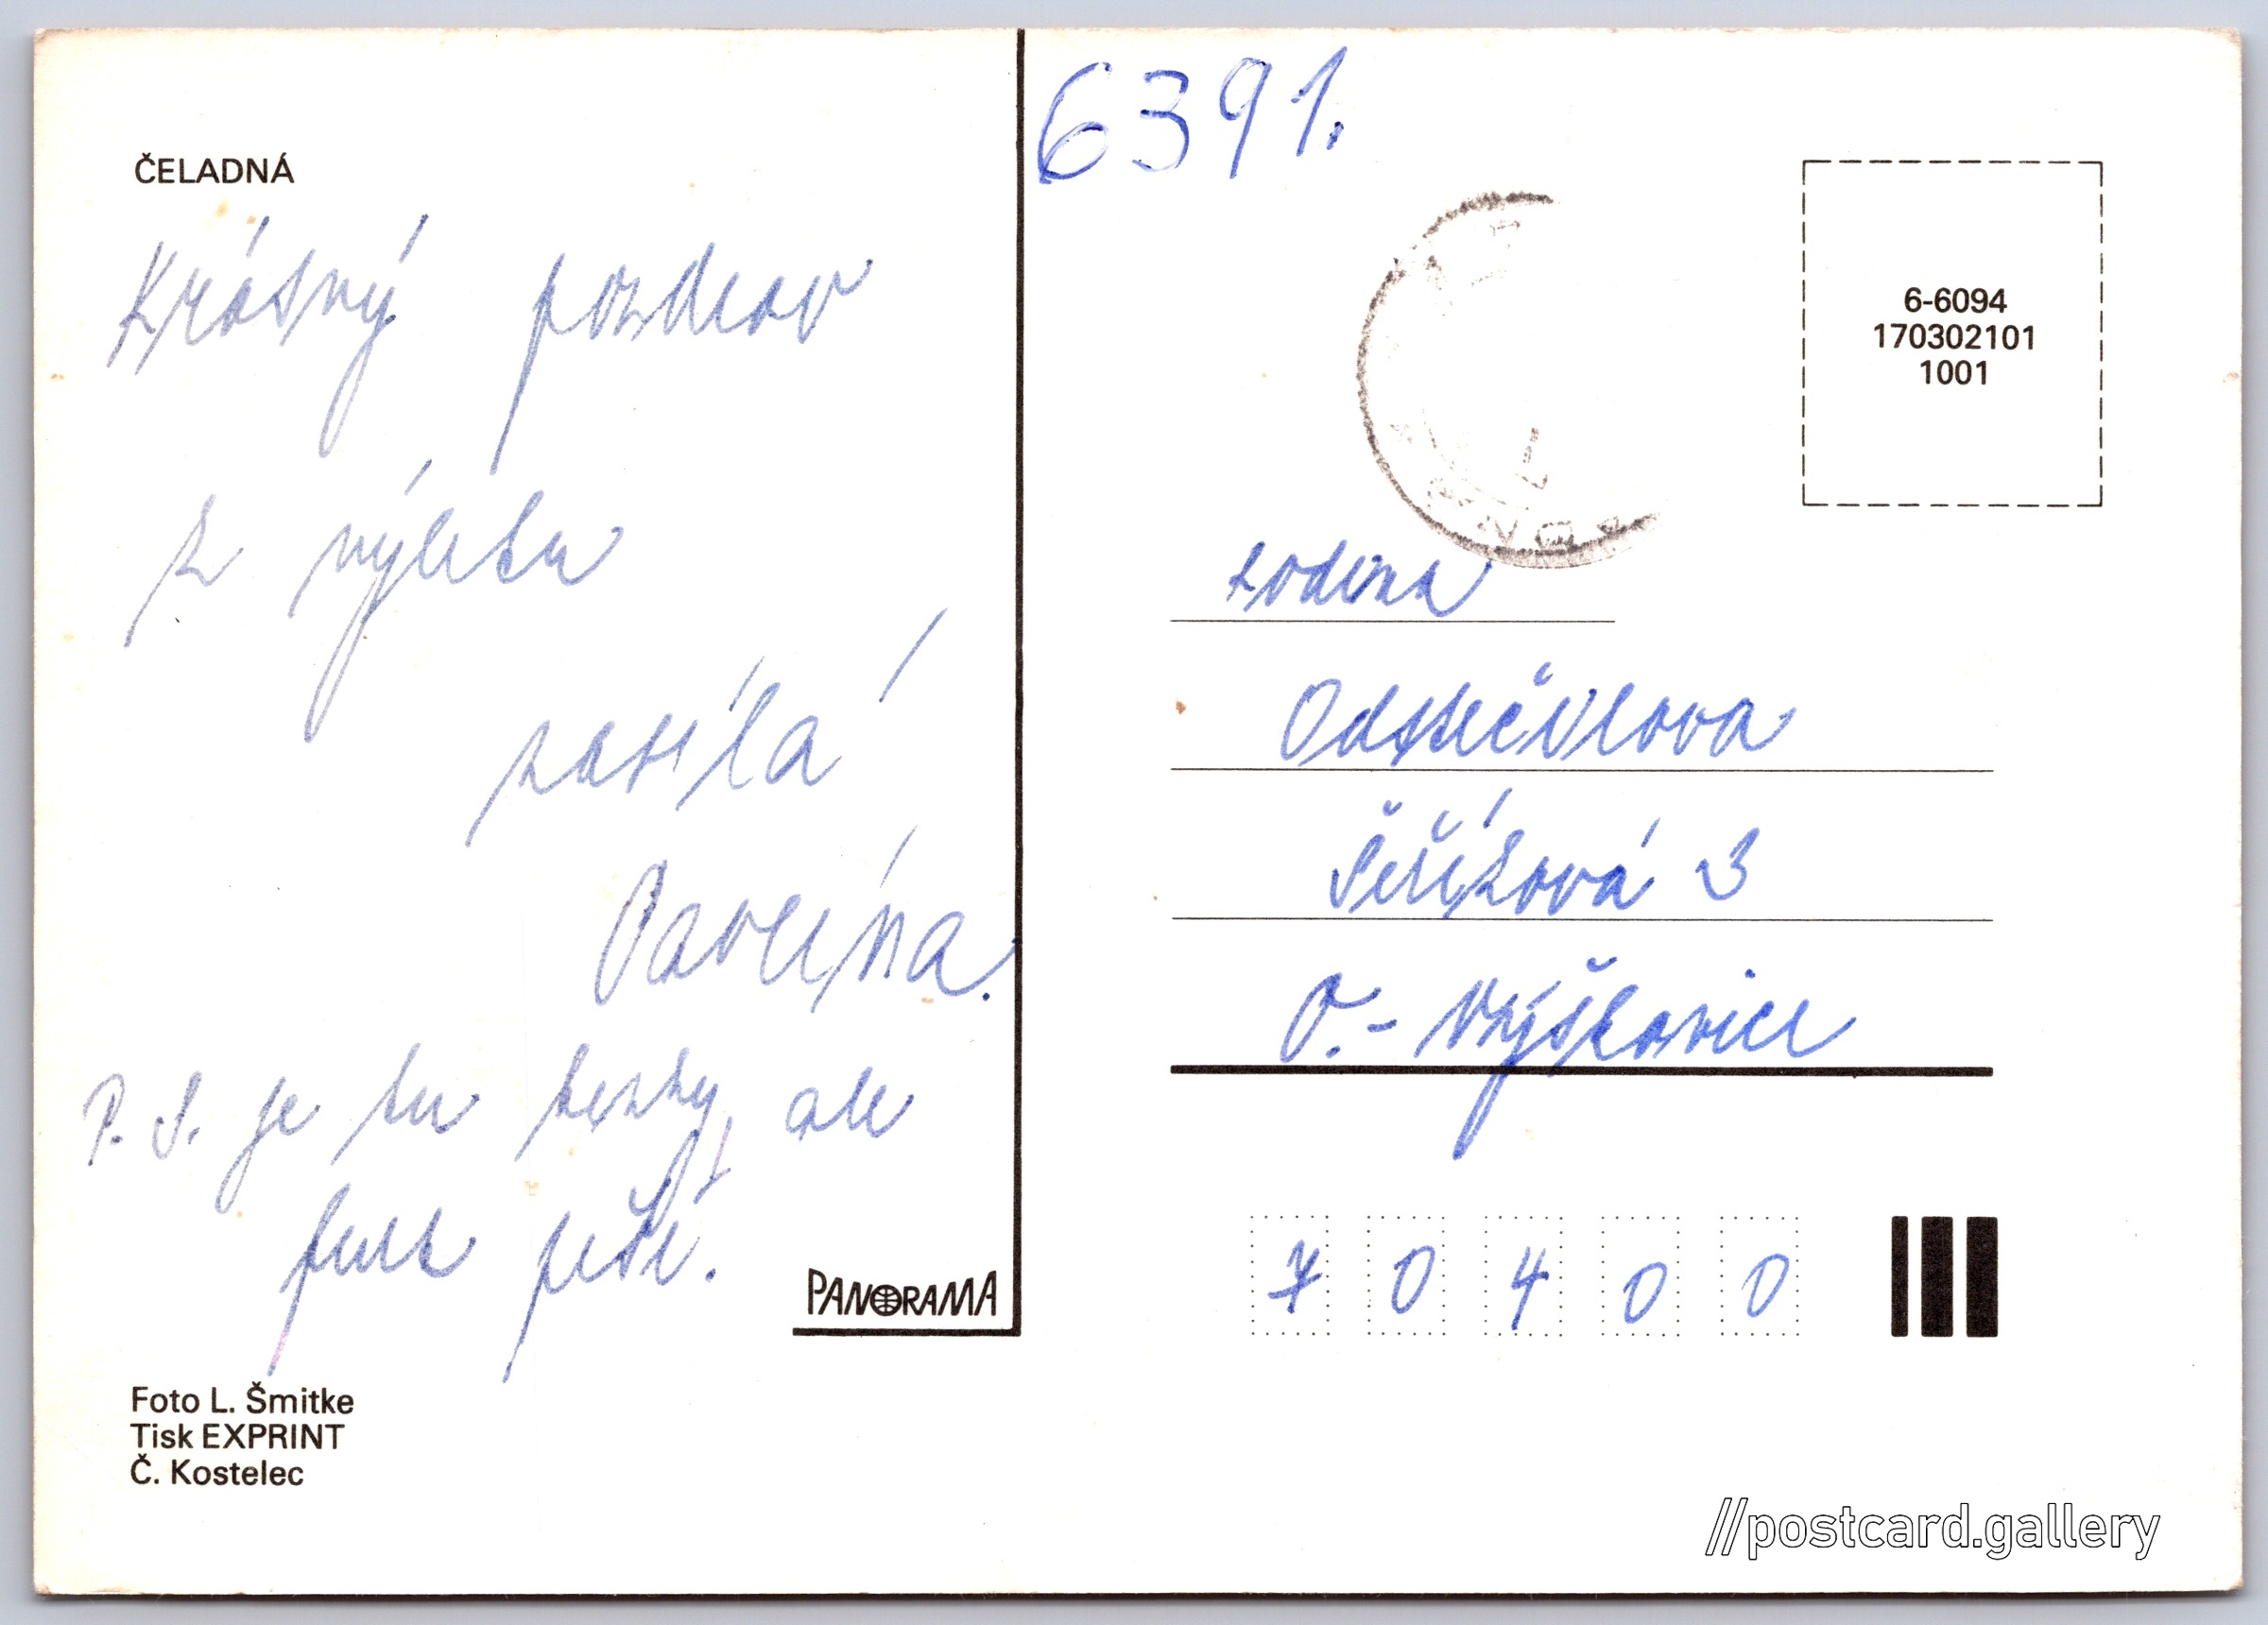 ČELADNÁ
Krásný pozdrav
z výletu
zasílá
Pavlína.
P. S. je tu hezky, ale
furt prší.
PANORAMA
Foto L. Šmitke
Tisk EXPRINT
Č. Kostelec
6391.
6-6094
170302101
1001
rodina
Odstrčilova
Šeříková 3
O.- Výškovice
70400
//postcard.gallery